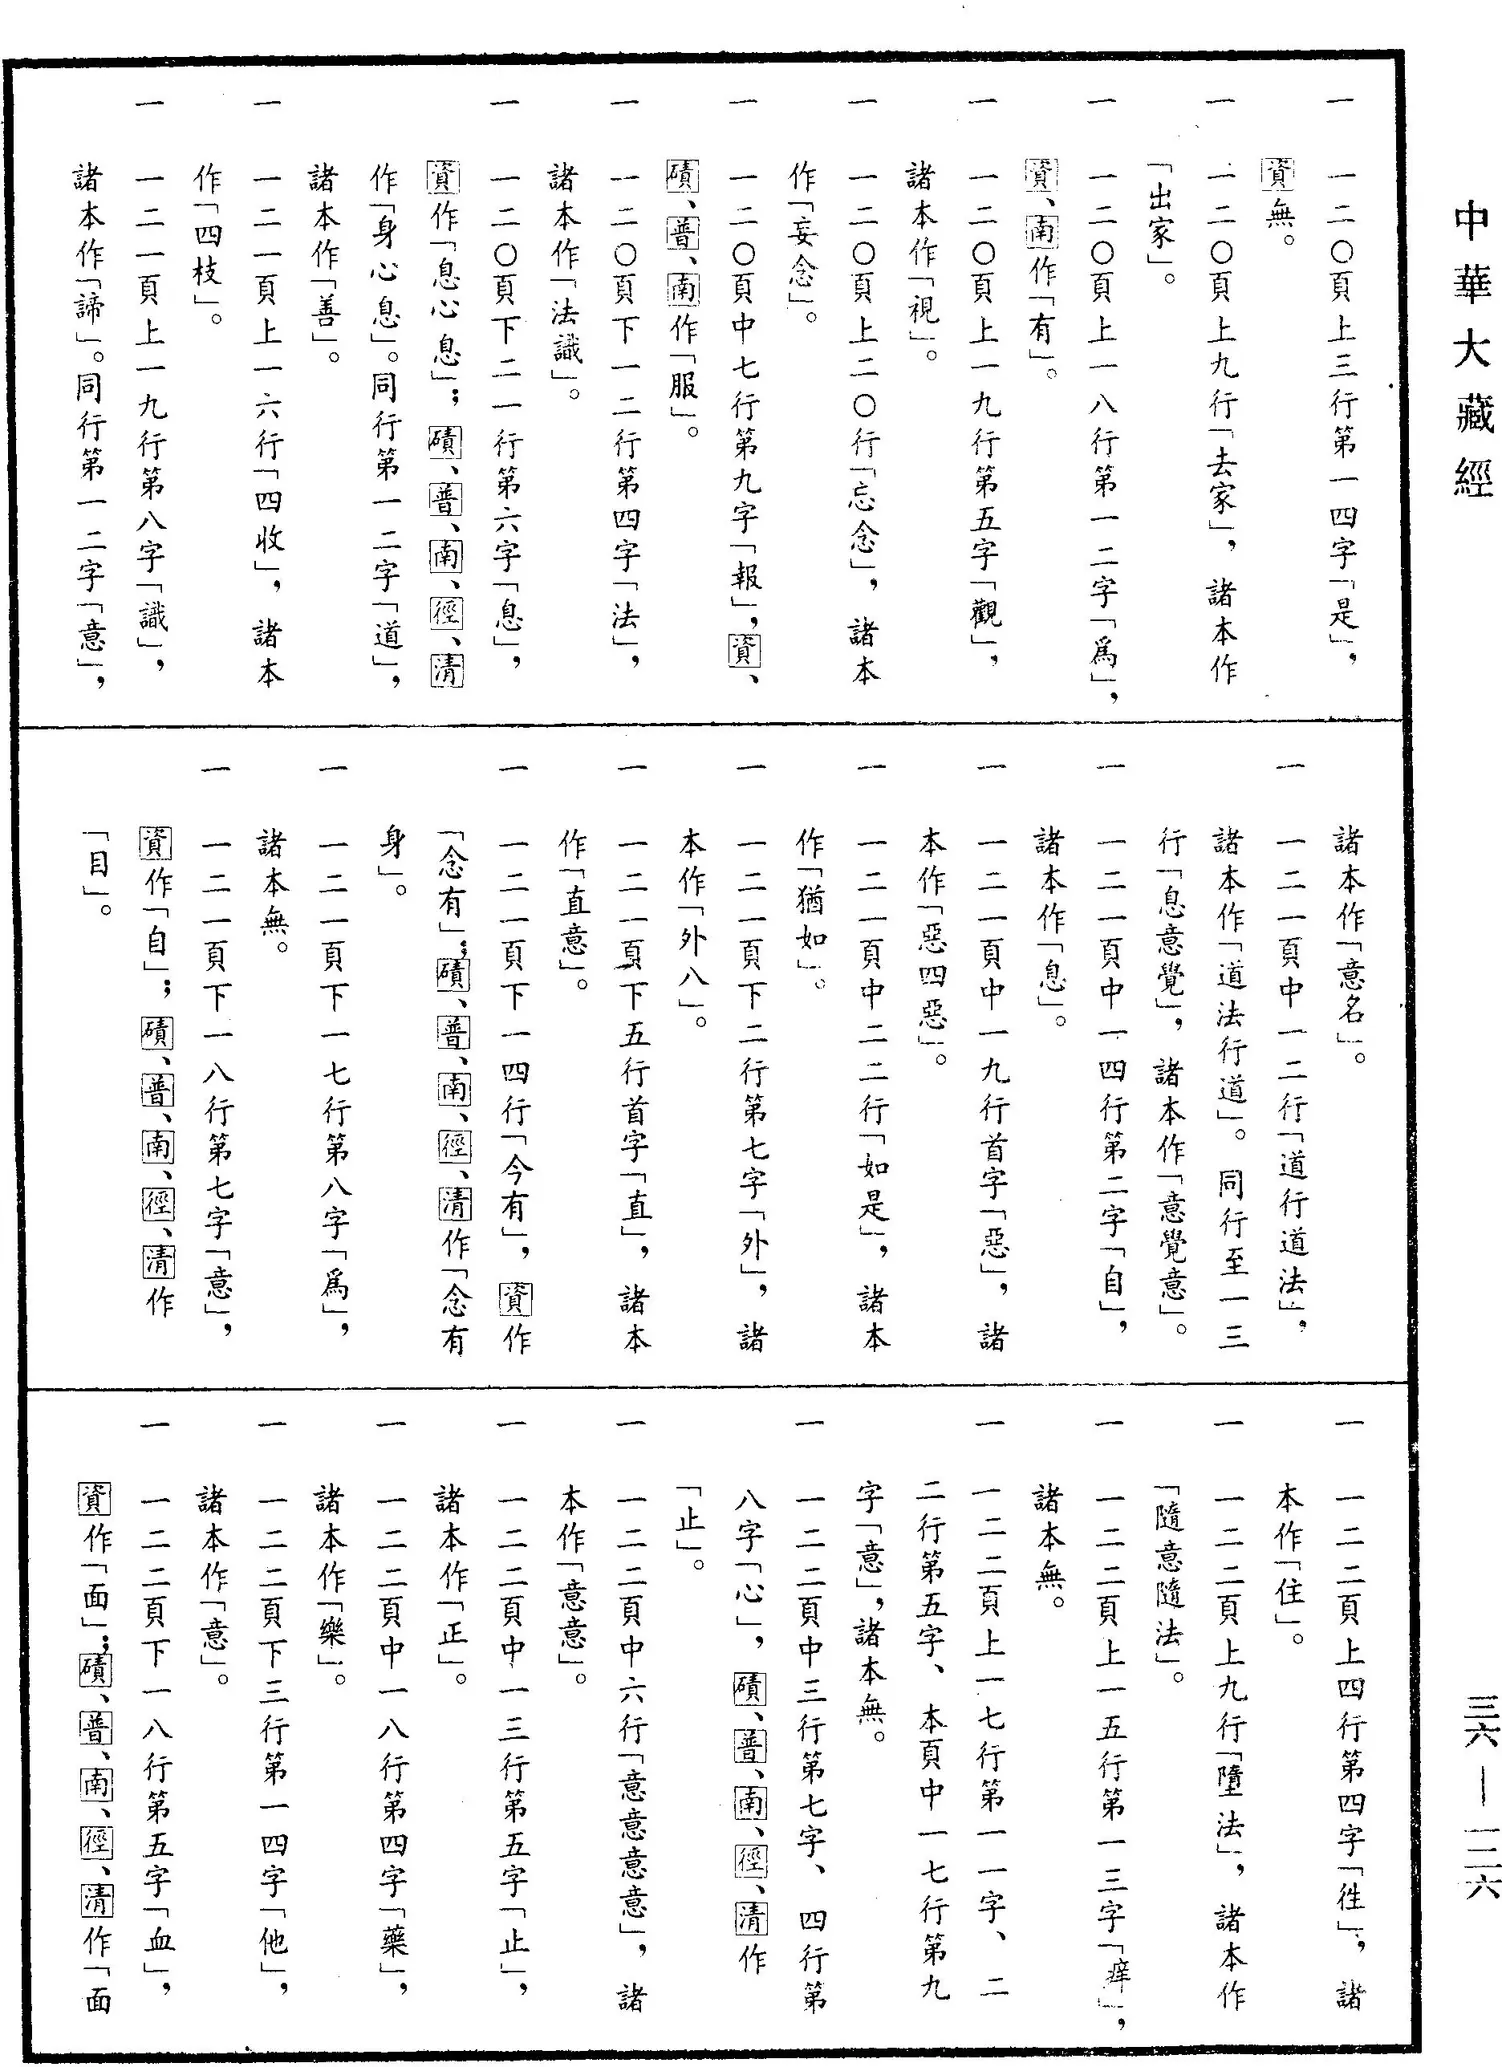 中華大藏經
一　一二〇頁上三行第一四字「是」，
資無。
一　一二〇頁上九行「去家」，諸本作
「出家」。
一　一二〇頁上一八行第一二字「爲」，
資、南作「有」。
一　一二〇頁上一九行第五字「觀」，
諸本作「視」。
一　一二〇頁上二〇行「忘念」，諸本
作「妄念」。
一　一二〇頁中七行第九字「報」，資、
磧、普、南作「服」。
一　一二〇頁下一二行第四字「法」，
諸本作「法識」。
一　一二〇頁下二一行第六字「息」，
資作「息心息」；磧、普、南、徑、清
作「身心息」。同行第一二字「道」，
諸本作「善」。
一　一二一頁上一六行「四收」，諸本
作「四枝」。
一　一二一頁上一九行第八字「識」，
諸本作「諦」。同行第一二字「意」，
諸本作「意名」。
一　一二一頁中一二行「道行道法」，
諸本作「道法行道」。同行至一三
行「息意覺」，諸本作「意覺意」。
一　一二一頁中一四行第二字「自」，
諸本作「息」。
一　一二一頁中一九行首字「惡」，諸
本作「惡四惡」。
一　一二一頁中二二行「如是」，諸本
作「猶如」。
一　一二一頁下二行第七字「外」，諸
本作「外八」。
一　一二一頁下五行首字「直」，諸本
作「直意」。
一　一二一頁下一四行「今有」，資作
「念有」；磧、普、南、徑、清作「念有
身」。
一　一二一頁下一七行第八字「爲」，
諸本無。
一　一二一頁下一八行第七字「意」，
資作「自」；磧、普、南、徑、清作
「目」。
一　一二二頁上四行第四字「徃」，諸
本作「住」。
一　一二二頁上九行「墮法」，諸本作
「隨意隨法」。
一　一二二頁上一五行第一三字「痒」，
諸本無。
一　一二二頁上一七行第一一字、二
二行第五字、本頁中一七行第九
字「意」，諸本無。
一　一二二頁中三行第七字、四行第
八字「心」，磧、普、南、徑、清作
「止」。
一　一二二頁中六行「意意意意」，諸
本作「意意」。
一　一二二頁中一三行第五字「止」，
諸本作「正」。
一　一二二頁中一八行第四字「藥」，
諸本作「樂」。
一　一二二頁下三行第一四字「他」，
諸本作「意」。
一　一二二頁下一八行第五字「血」，
資作「面」；磧、普、南、徑、清作「面
三六—一二六